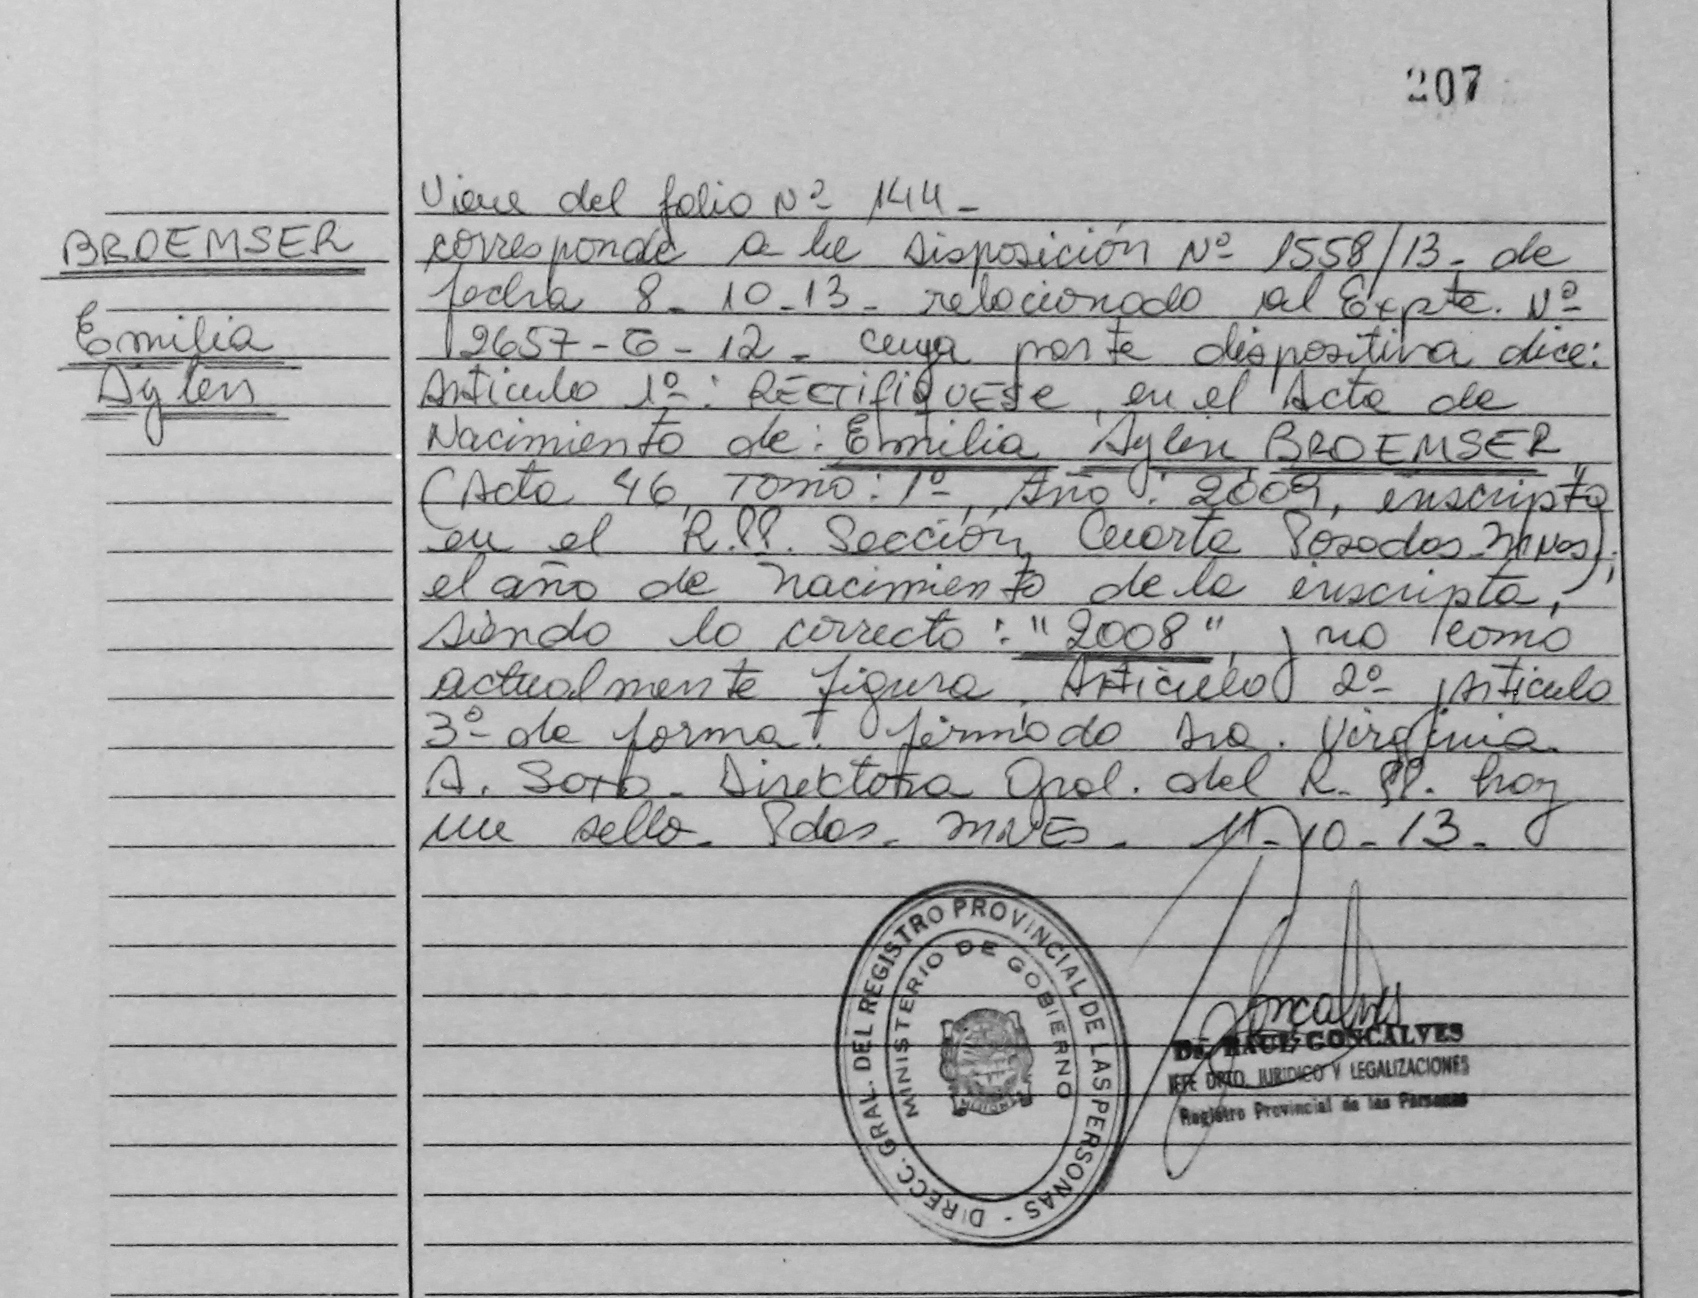 207
Viene del folio Nº 144-
BROEMSER
Emilia
Aylen
corresponde a la Disposición Nº 1558/13- de
fecha 8-10-13- relacionado al Expte. Nº
2657-G-12- cuya parte dispositiva dice:
Artículo 1º: RECTIFIQUESE, en el Acta de
Nacimiento de: Emilia Aylen BROEMSER
(Acta 46, Tomo: 1º, Año: 2009, inscripta
en el R.PP. Sección Cuarta Posadas-Mnes),
el año de nacimiento de la inscripta,
siendo lo correcto: "2008", y no como
actualmente figura. Artículo 2º, Artículo
3º de forma. Firmado Sra. Virginia
A. Soto- Directora Gral. del R.PP. hay
un sello- Pdas- MNES- 11-10-13-
DIRECC. GRAL. DEL REGISTRO PROVINCIAL DE LAS PERSONAS -
MINISTERIO DE GOBIERNO
MISIONES
Goncalves
Dr. RAUL GONCALVES
JEFE DPTO. JURIDICO Y LEGALIZACIONES
Registro Provincial de las Personas